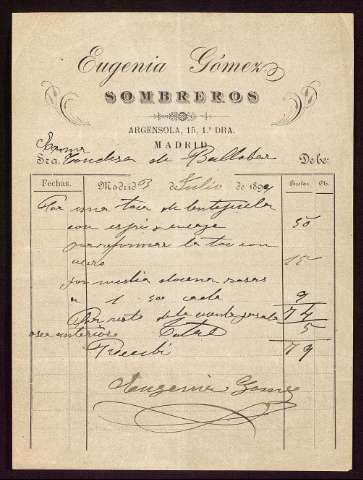 Eugenia Gómez
SOMBREROS
ARGENSOLA, 15, 1.º DRA.
MADRID
Sra. Condesa de Ballobar Debe:
Fechas. Madrid 3 Julio de 189 Pesetas Cts.
Por una toca de lentejuela
con esprí y encage 50
transformar la toca con
15
por media docena rosas
a 1 50 cada 9
74
Por resto de la cuenta pasada 5
anterior Total
Recibí 79
Eugenia Gomez